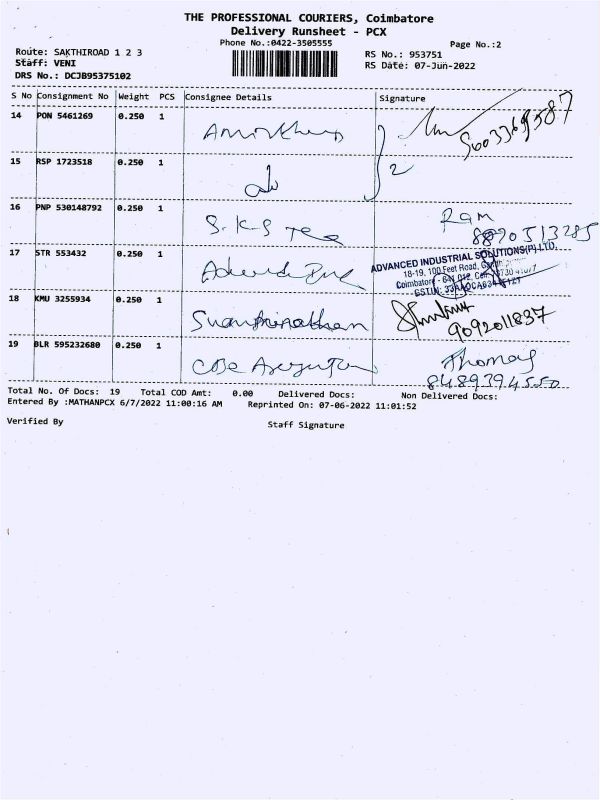 THE PROFESSIONAL COURIERS, Coimbatore
Delivery Runsheet - PCX
Phone No.:0422-3505555
Page No.:2
Route: SAKTHIROAD 1 2 3
RS No.: 953751
Staff: VENI
RS Date: 07-Jun-2022
DRS No.: DCJB95375102
S No Consignment No Weight PCS Consignee Details Signature
14 PON 5461269 0.250 1
15 RSP 1723518 0.250 1 2
16 PNP 530148792 0.250 1 S.K.S Tea Ram
8890513285
17 STR 553432 0.250 1
ADVANCED INDUSTRIAL SOLUTIONS(P) LTD,
18-19, 100 Feet Road,
Coimbatore - 641 012.
18 KMU 3255934 0.250 1
9092011837
19 BLR 595232680 0.250 1 Thomas
8489394550
Total No. Of Docs: 19 Total COD Amt: 0.00 Delivered Docs: Non Delivered Docs:
Entered By :MATHANPCX 6/7/2022 11:00:16 AM Reprinted On: 07-06-2022 11:01:52
Verified By
Staff Signature